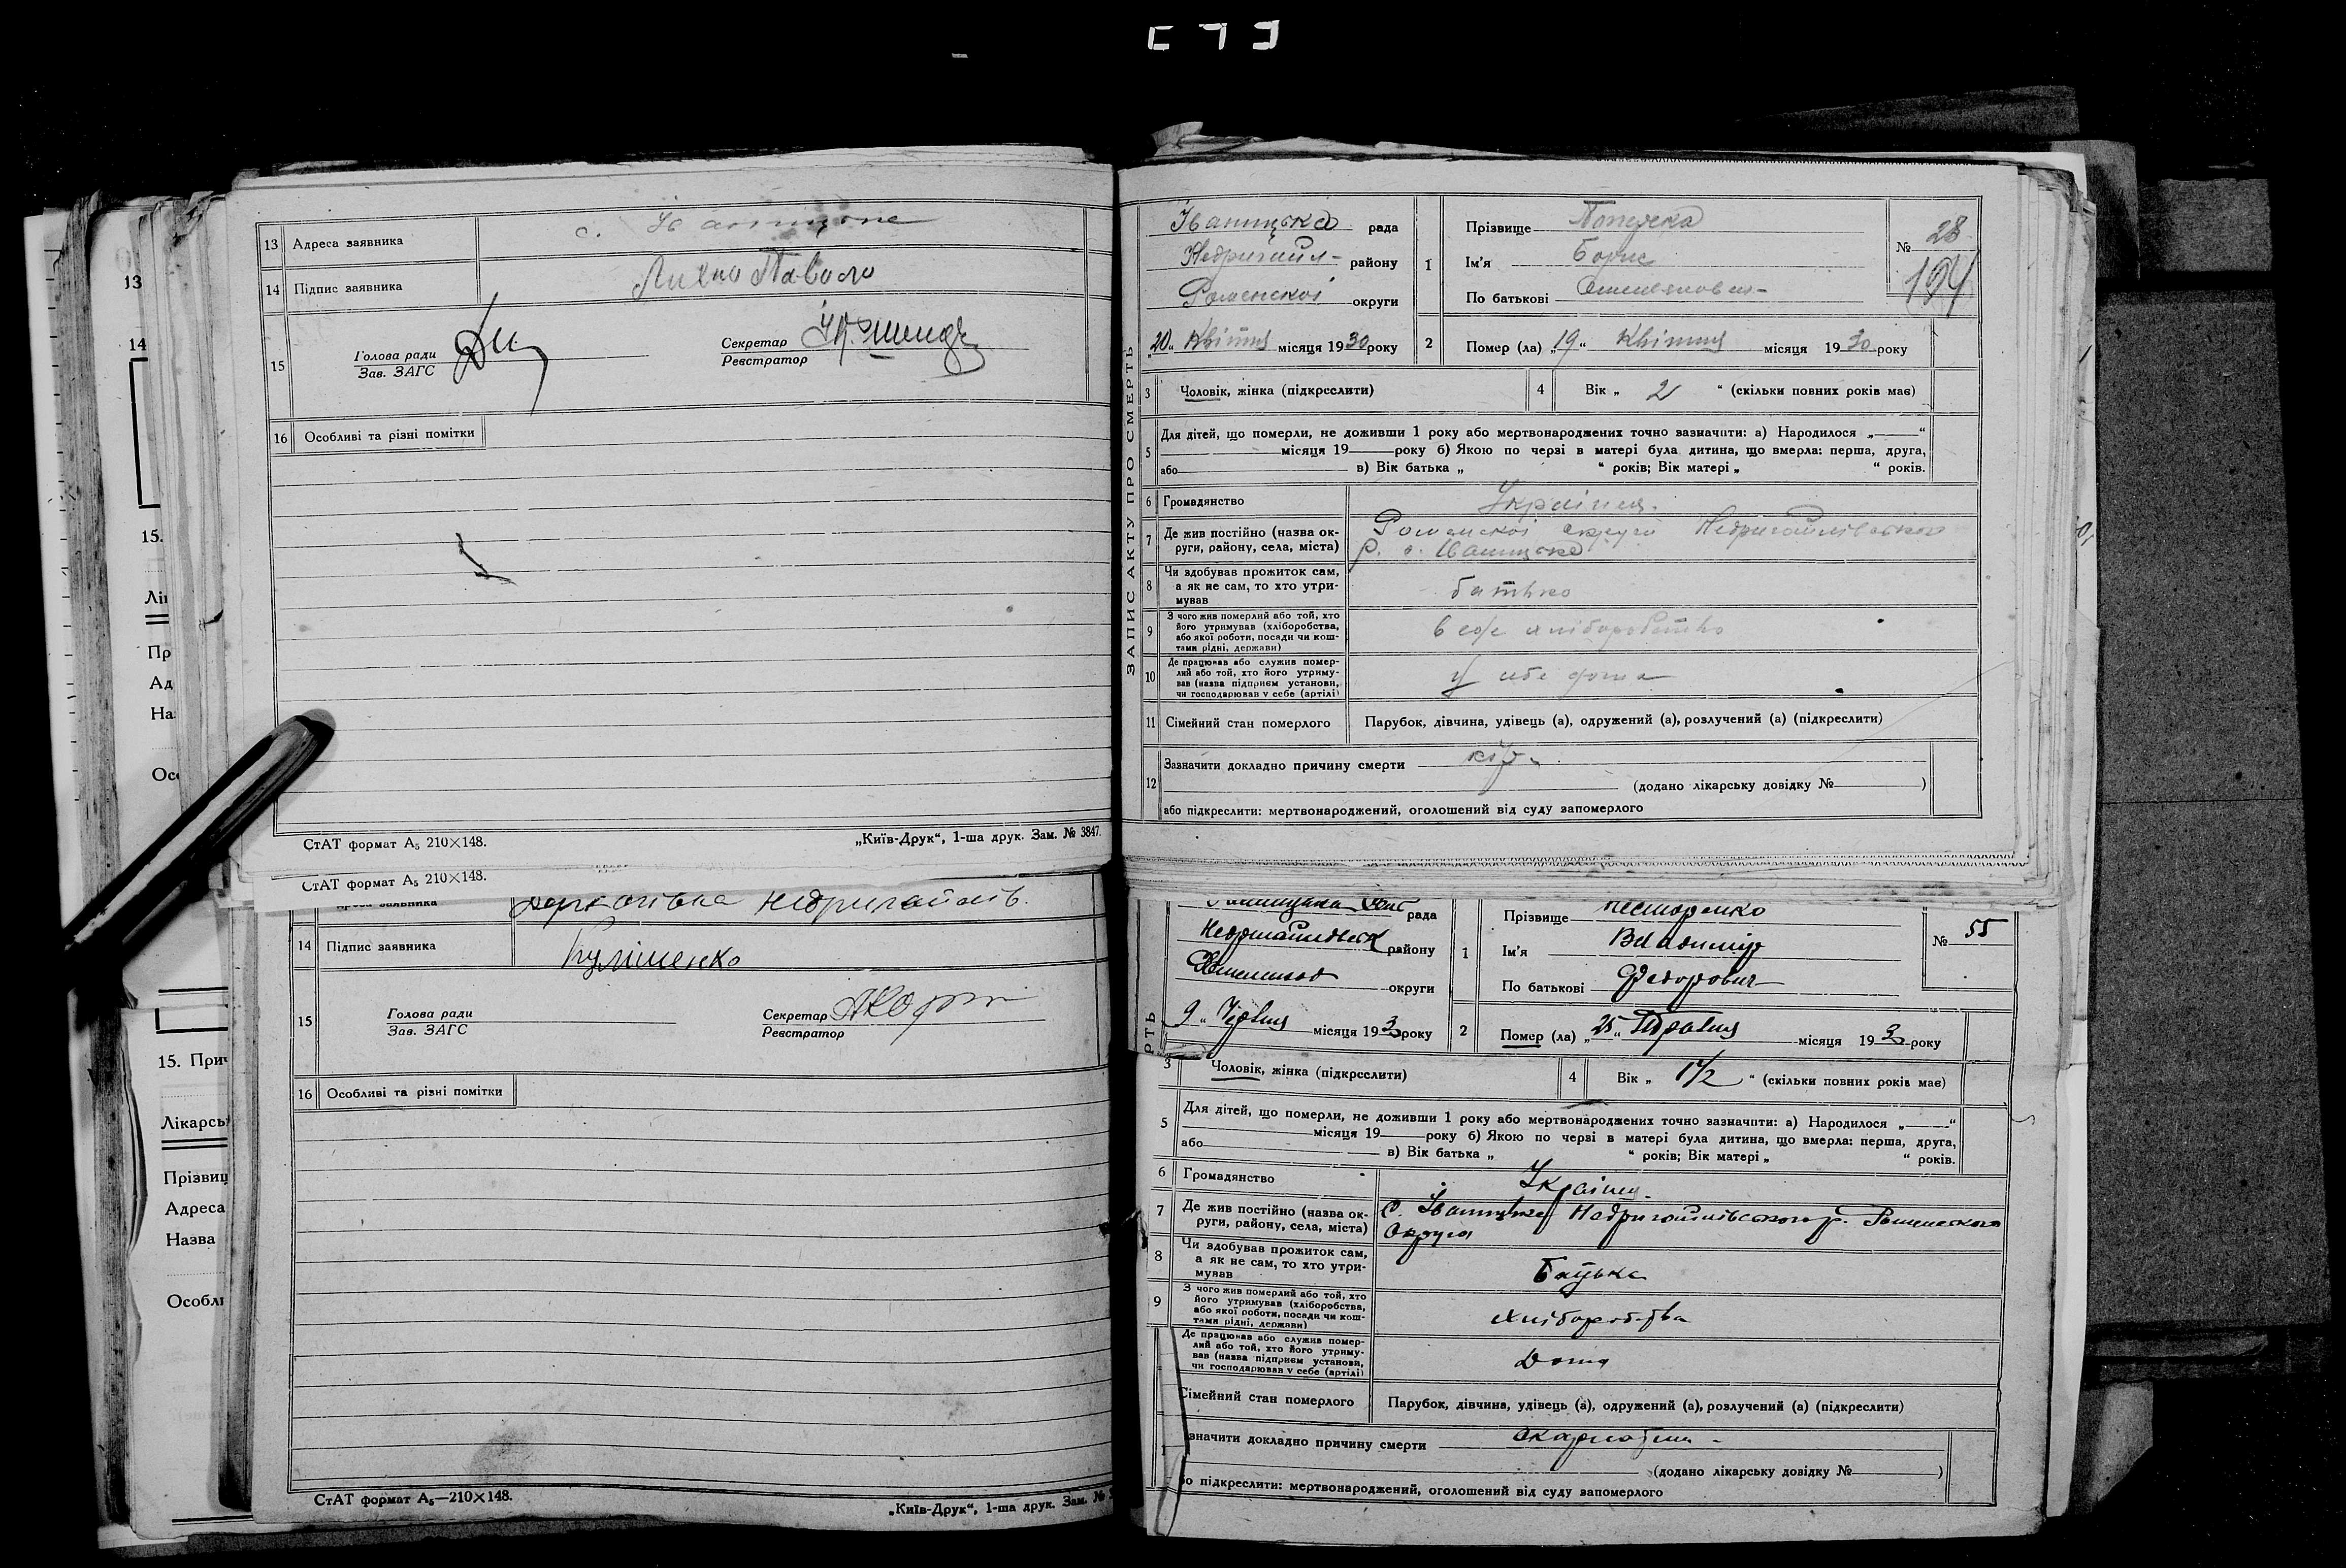 13 Адреса заявника с.
14 Підпис заявника Павло
15 Голова ради
Зав. ЗАГС
Секретар
Реєстратор
16 Особливі та різні помітки
СтАТ формат А₅ 210×148.
„Київ-Друк“, 1-ша друк. Зам. № 3847.
ЗАПИС АКТУ ПРО СМЕРТЬ
Іваницька рада
Недригайл- району
Роменської округи
„20“ Квітня місяця 1930 року
1 Прізвище
Ім'я Борис
По батькові
№ 28
194
2 Помер (ла) „19“ Квітня місяця 1930 року
3 Чоловік, жінка (підкреслити)
4 Вік „ 2 “ (скільки повних років має)
5 Для дітей, що померли, не доживши 1 року або мертвонароджених точно зазначити: а) Народилося „ “
місяця 19 року б) Якою по черзі в матері була дитина, що вмерла: перша, друга,
або в) Вік батька „ “ років; Вік матері „ “ років.
6 Громадянство Україн.
7 Де жив постійно (назва ок-
руги, району, села, міста)
Роменської округи Недригайлівського
р. с. Іваницька
8 Чи здобував прожиток сам,
а як не сам, то хто утри-
мував
батько
9 З чого жив померлий або той, хто
його утримував (хліборобства,
або якої роботи, посади чи кош-
тами рідні, держави)
10 Де працював або служив помер-
лий або той, хто його утриму-
вав (назва підприєм установи,
чи господарював у себе (артілі)
у себе дома
11 Сімейний стан померлого
Парубок, дівчина, удівець (а), одружений (а), розлучений (а) (підкреслити)
12 Зазначити докладно причину смерти кір
(додано лікарську довідку № )
або підкреслити: мертвонароджений, оголошений від суду запомерлого
СтАТ формат А₅ 210×148.
Недригайлів.
14 Підпис заявника Кулішенко
15 Голова ради
Зав. ЗАГС
Секретар
Реєстратор
16 Особливі та різні помітки
СтАТ формат А₅—210×148.
„Київ-Друк“, 1-ша друк. Зам. №
рада
району
округи
„9“ Червня місяця 193 року
1 Прізвище Нестеренко
Ім'я Владимир
По батькові Федорович
№ 55
2 Помер (ла) „25“ Травня місяця 193 року
3 Чоловік, жінка (підкреслити)
4 Вік „ 1½ “ (скільки повних років має)
5 Для дітей, що померли, не доживши 1 року або мертвонароджених точно зазначити: а) Народилося „ “
місяця 19 року б) Якою по черзі в матері була дитина, що вмерла: перша, друга,
або в) Вік батька „ “ років; Вік матері „ “ років.
6 Громадянство Україн.
7 Де жив постійно (назва ок-
руги, району, села, міста)
с. Недригайлівського р. Роменського
Округа
8 Чи здобував прожиток сам,
а як не сам, то хто утри-
мував
Батька
9 З чого жив померлий або той, хто
його утримував (хліборобства,
або якої роботи, посади чи кош-
тами рідні, держави)
хліборобства
Де працював або служив помер-
лий або той, хто його утриму-
вав (назва підприєм установи,
чи господарював у себе (артілі)
Дома
Сімейний стан померлого
Парубок, дівчина, удівець (а), одружений (а), розлучений (а) (підкреслити)
значити докладно причину смерти
(додано лікарську довідку № )
бо підкреслити: мертвонароджений, оголошений від суду запомерлого
13
14
15.
Лі
Пр
Ад
На
Осо
15. При
Лікарсь
Прізвищ
Адреса
Назва
Особл